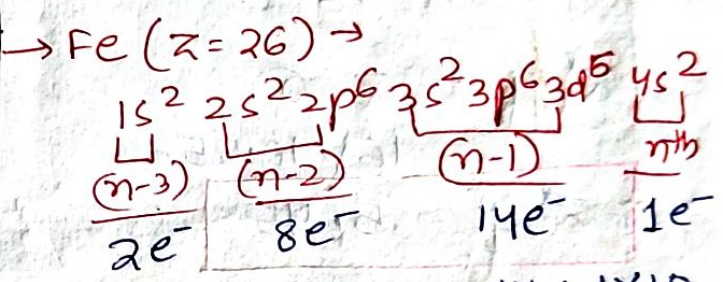 → Fe (Z=26) →
1s² 2s² 2p⁶ 3s² 3p⁶ 3d⁵ 4s²
(n-3) (n-2) (n-1) nth
2e⁻ 8e⁻ 14e⁻ 1e⁻